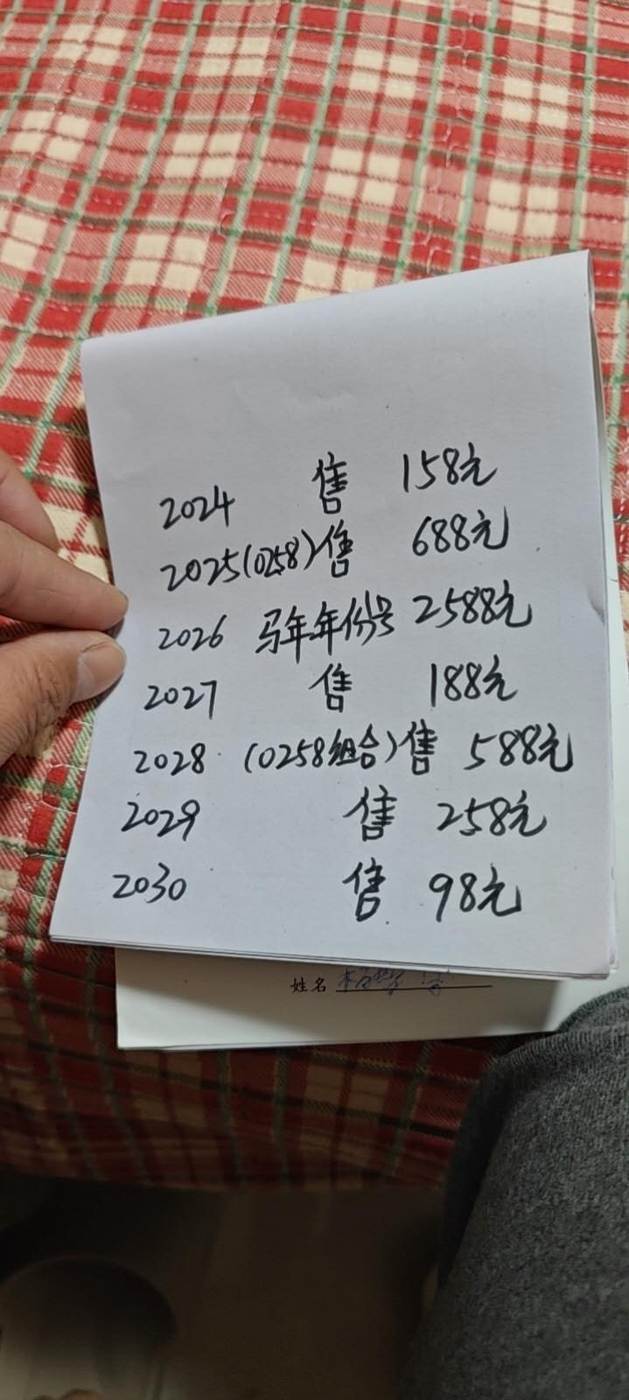 2024 售 158元
2025(0258)售 688元
2026 马年年份号 2588元
2027 售 188元
2028 (0258组合)售 588元
2029 售 258元
2030 售 98元
姓名